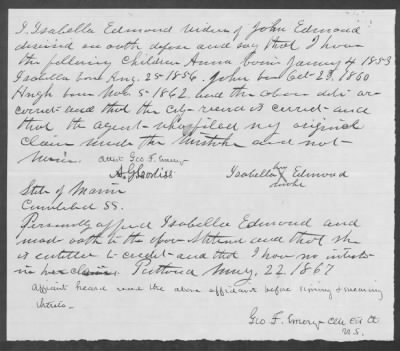 I, Isabella Edmond widow of John Edmond
deceased on oath depose and say that I have
the following children Anna born January 4 1853
Isabella born Aug. 25 1856. John born Oct- 23. 1860
Hugh born Nov 5- 1862 and the above date are
correct- and that the city record is correct- and
that the agent- who filed my original
claim made the mistake and not
mine. attest Geo F. Emery
Isabella her X mark Edmond
State of Maine
Cumberland SS.
Personally appd Isabella Edmond and
made oath to the above Statement and that she
is entitled to credit- and that I have no interest
in her claim. Portland 22 1867
Affiant heard read the above affidavit before signing & swearing
thereto.
Geo F. Emery Clk Ct
U.S.